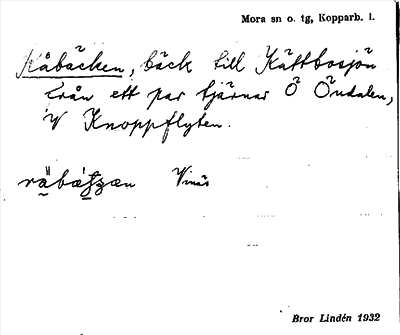 Mora sn o. tg, Kopparb. l.
Råbäcken, bäck till Kättbosjön
från ett par tjärnar Ö Öndalen,
V Knoppflyten.
Vinäs
Bror Lindén 1932